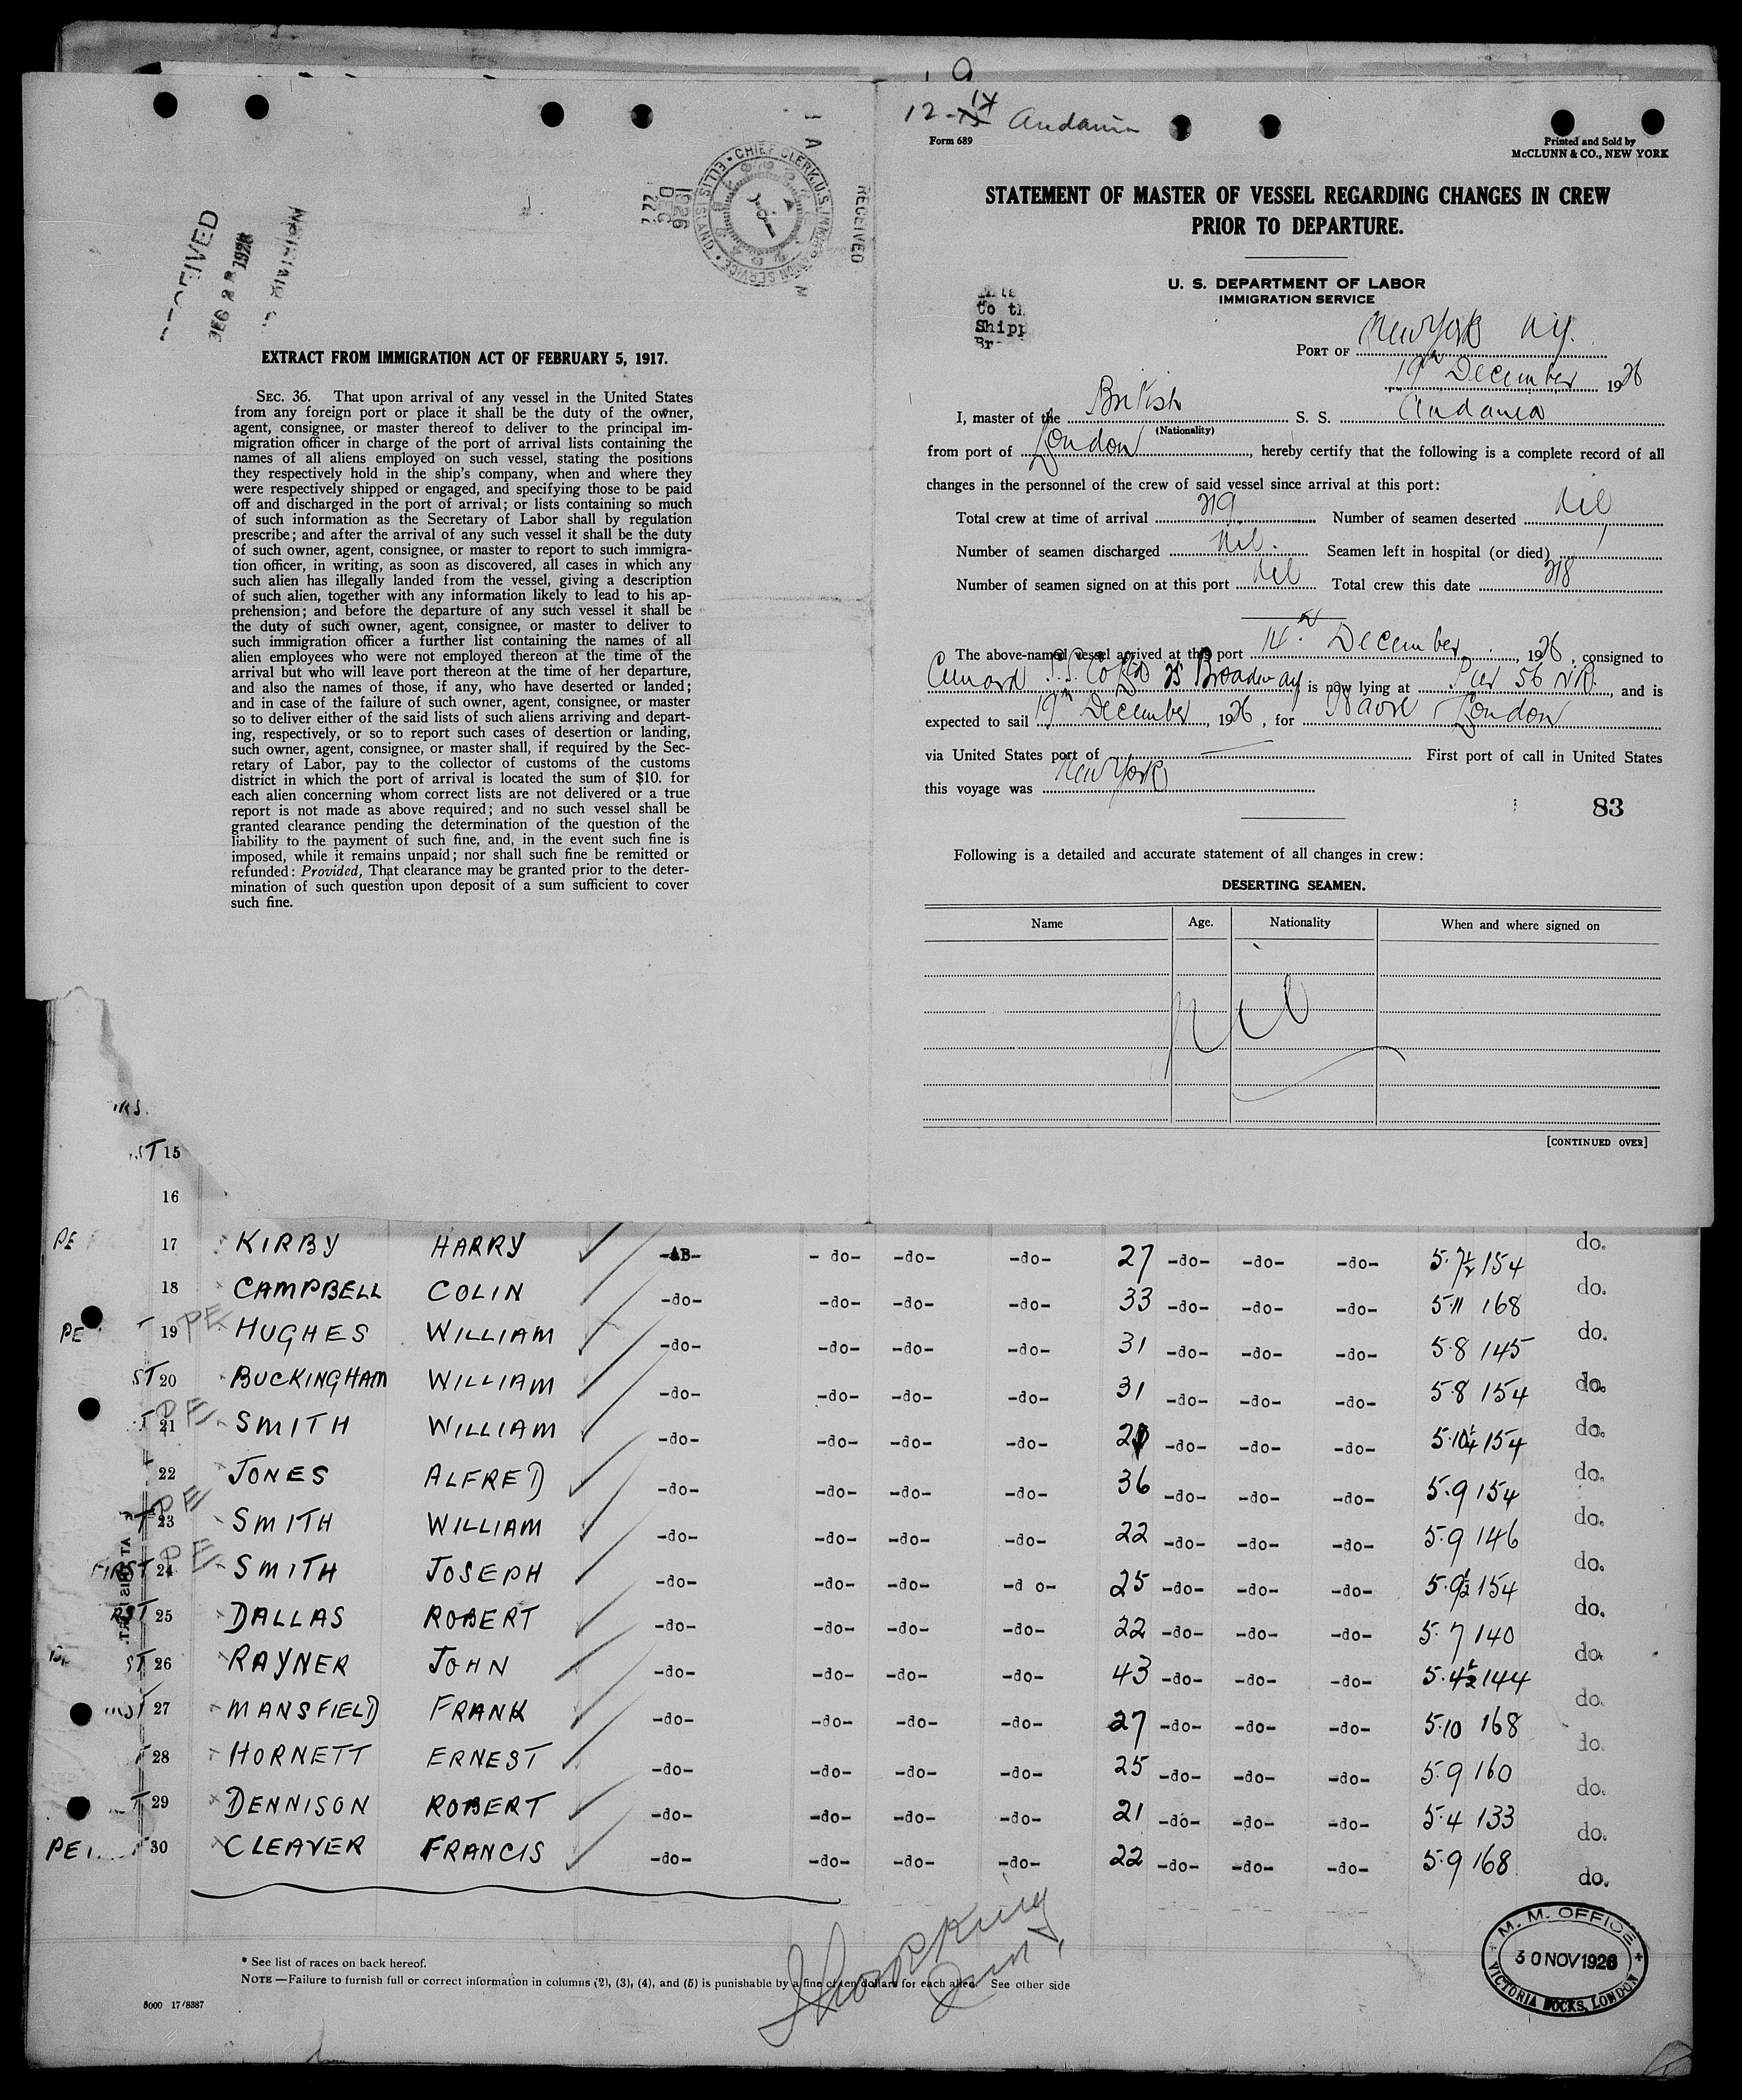 RECEIVED
DEC 28 1926
DIVISION
1926
DEC
22
CHIEF CLERK, U.S. IMMIGRATION SERVICE • ELLIS ISLAND •
RECEIVED
EXTRACT FROM IMMIGRATION ACT OF FEBRUARY 5, 1917.
SEC. 36. That upon arrival of any vessel in the United States
from any foreign port or place it shall be the duty of the owner,
agent, consignee, or master thereof to deliver to the principal im-
migration officer in charge of the port of arrival lists containing the
names of all aliens employed on such vessel, stating the positions
they respectively hold in the ship's company, when and where they
were respectively shipped or engaged, and specifying those to be paid
off and discharged in the port of arrival; or lists containing so much
of such information as the Secretary of Labor shall by regulation
prescribe; and after the arrival of any such vessel it shall be the duty
of such owner, agent, consignee, or master to report to such immigra-
tion officer, in writing, as soon as discovered, all cases in which any
such alien has illegally landed from the vessel, giving a description
of such alien, together with any information likely to lead to his ap-
prehension; and before the departure of any such vessel it shall be
the duty of such owner, agent, consignee, or master to deliver to
such immigration officer a further list containing the names of all
alien employees who were not employed thereon at the time of the
arrival but who will leave port thereon at the time of her departure,
and also the names of those, if any, who have deserted or landed;
and in case of the failure of such owner, agent, consignee, or master
so to deliver either of the said lists of such aliens arriving and depart-
ing, respectively, or so to report such cases of desertion or landing,
such owner, agent, consignee, or master shall, if required by the Sec-
retary of Labor, pay to the collector of customs of the customs
district in which the port of arrival is located the sum of $10. for
each alien concerning whom correct lists are not delivered or a true
report is not made as above required; and no such vessel shall be
granted clearance pending the determination of the question of the
liability to the payment of such fine, and, in the event such fine is
imposed, while it remains unpaid; nor shall such fine be remitted or
refunded: Provided, That clearance may be granted prior to the deter-
mination of such question upon deposit of a sum sufficient to cover
such fine.
12-14 Andania
Form 689
Printed and Sold by
McCLUNN & CO., NEW YORK
STATEMENT OF MASTER OF VESSEL REGARDING CHANGES IN CREW
PRIOR TO DEPARTURE.
U. S. DEPARTMENT OF LABOR
IMMIGRATION SERVICE
to th
Shipp
Br
PORT OF New York N.Y.
19th December 1926
I, master of the British S. S. Andania
(Nationality)
from port of London, hereby certify that the following is a complete record of all
changes in the personnel of the crew of said vessel since arrival at this port:
Total crew at time of arrival 219 Number of seamen deserted Nil
Number of seamen discharged Nil. Seamen left in hospital (or died) 1
Number of seamen signed on at this port Nil Total crew this date 218
The above-named vessel arrived at this port 14th December, 1926, consigned to
Cunard S.S. Co Ltd 25 Broadway is now lying at Pier 56 N.R., and is
expected to sail 19th December, 1926, for Havre, London
via United States port of — First port of call in United States
this voyage was New York
83
Following is a detailed and accurate statement of all changes in crew:
DESERTING SEAMEN.
Name Age. Nationality When and where signed on
Nil
[CONTINUED OVER]
ST 15
16
PE 17 KIRBY HARRY -AB- -do- -do- -do- 27 -do- -do- -do- 5.7½ 154 do.
18 CAMPBELL COLIN -do- -do- -do- -do- 33 -do- -do- -do- 5.11 168 do.
PE 19 PE HUGHES WILLIAM -do- -do- -do- -do- 31 -do- -do- -do- 5.8 145 do.
ST 20 BUCKINGHAM WILLIAM -do- -do- -do- -do- 31 -do- -do- -do- 5.8 154 do.
T 21 PE SMITH WILLIAM -do- -do- -do- -do- -do- -do- -do- 5.10¼ 154 do.
22 JONES ALFRED -do- -do- -do- -do- 36 -do- -do- -do- 5.9 154 do.
23 PE SMITH WILLIAM -do- -do- -do- -do- 22 -do- -do- -do- 5.9 146 do.
FIRST 24 PE SMITH JOSEPH -do- -do- -do- -do- 25 -do- -do- -do- 5.9½ 154 do.
RST 25 DALLAS ROBERT -do- -do- -do- -do- 22 -do- -do- -do- 5.7 140 do.
ST 26 RAYNER JOHN -do- -do- -do- -do- 43 -do- -do- -do- 5.4½ 144 do.
ST 27 MANSFIELD FRANK -do- -do- -do- -do- 27 -do- -do- -do- 5.10 168 do.
28 HORNETT ERNEST -do- -do- -do- -do- 25 -do- -do- -do- 5.9 160 do.
T 29 DENNISON ROBERT -do- -do- -do- -do- 21 -do- -do- -do- 5.4 133 do.
PE 30 CLEAVER FRANCIS -do- -do- -do- -do- 22 -do- -do- -do- 5.9 168 do.
* See list of races on back hereof.
NOTE—Failure to furnish full or correct information in columns (2), (3), (4), and (5) is punishable by a fine of ten dollars for each alien. See other side
5000 17/8387
M. M. OFFICE
30 NOV 1926
VICTORIA DOCKS, LONDON